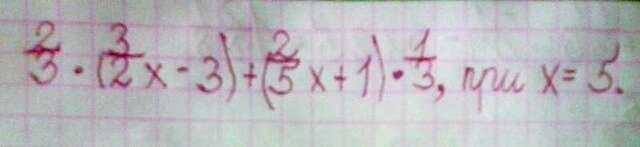 2/3 · (3/2 x - 3) + (2/5 x + 1) · 1/3, при x = 5.